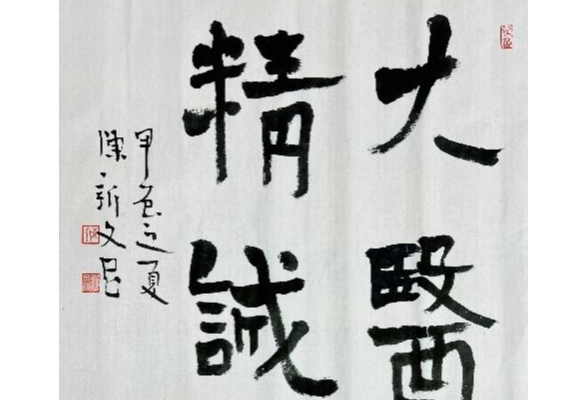 大醫
精誠
甲辰之夏
陳新文